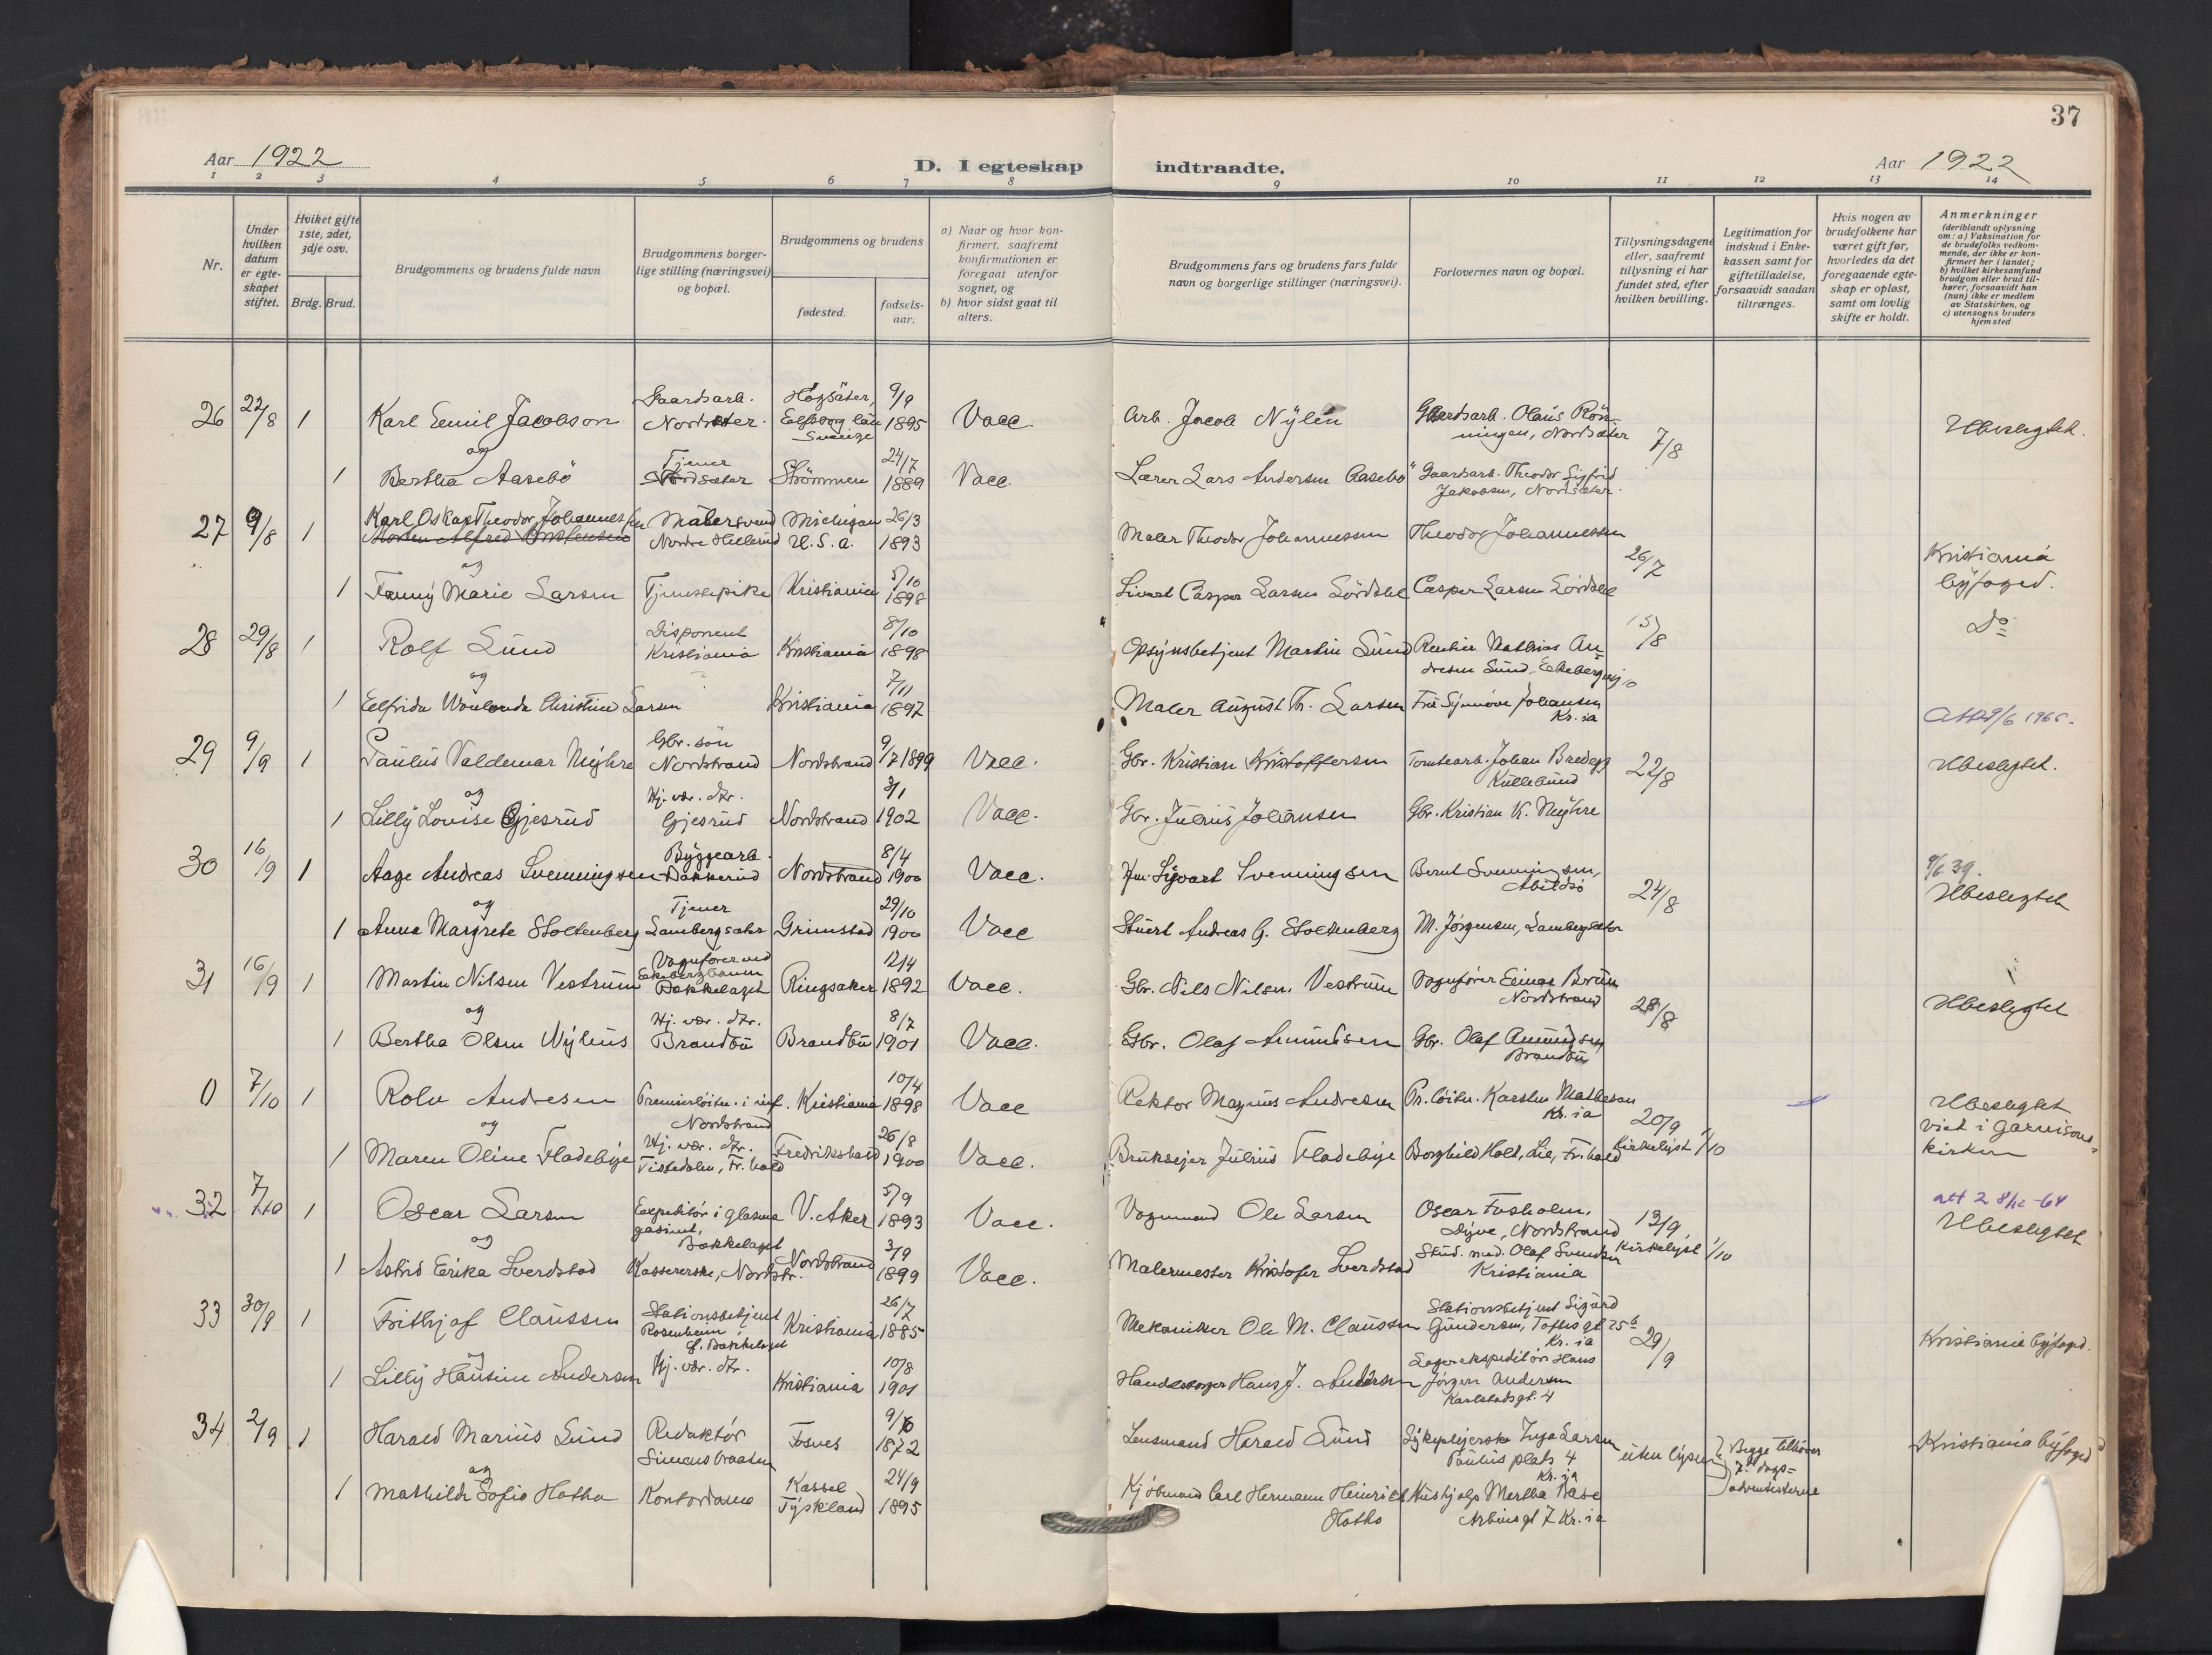 37
Aar 1922
D. I egteskap indtraadte.
Aar 1922
1 2 3 4 5 6 7 8 9 10 11 12 13 14
Nr.
Under hvilken datum er egteskapet stiftet.
Hviket gifte 1ste, 2det, 3dje osv.
Brdg. Brud.
Brudgommens og brudens fulde navn
Brudgommens borgerlige stilling (næringsvei) og bopæl.
Brudgommens og brudens
fødested.
fødselsaar.
a) Naar og hvor konfirmert, saafremt konfirmationen er foregaat utenfor sognet, og
b) hvor sidst gaat til alters.
Brudgommens fars og brudens fars fulde navn og borgerlige stillinger (næringsvei).
Forlovernes navn og bopæl.
Tillysningsdagene eller, saafremt tillysning ei har fundet sted, efter hvilken bevilling.
Legitimation for indskud i Enkekassen samt for giftetilladelse, forsaavidt saadan tiltrænges.
Hvis nogen av brudefolkene har været gift før, hvorledes da det foregaaende egteskap er opløst, samt om lovlig skifte er holdt.
Anmerkninger
(deriblandt oplysning om: a) Vaksination for de brudefolks vedkommende, der ikke er konfirmert her i landet; b) hvilket kirkesamfund brudgom eller brud tilhører, forsaavidt han (hun) ikke er medlem av Statskirken, og c) utensogns bruders hjemsted
26 22/8 1 Karl Emil Jacobson Gaardsarb. Nordseter. Högsäter, Elfsborg län Sverige 9/9 1895 Vacc. Arb. Jacob Nylén Gaardsarb. Olaus Rönningen, Nordseter 7/8 Ubeslegtet.
og
1 Bertha Aasebö Tjener Nordseter Strömmen 24/7 1889 Vacc. Lærer Lars Andersen Aasebö Gaardsarb. Theodor Sigfrid Jakobsen, Nordseter.
27 9/8 1 Karl Oskar Theodor Johannessen Malersvend Nordre Hellerud Michigan U.S.a. 26/3 1893 Maler Theodor Johannessen Theodor Johannessen 26/7 Kristiania byfoged.
og
1 Fanny Marie Larsen Tjenestepike Kristiania 5/10 1898 Casper Larsen Lördahl Casper Larsen Lördahl
28 29/8 1 Rolf Lund Disponent Kristiania Kristiania 8/10 1898 Opsynsbetjent Martin Lund Rentier Mathias Andresen Lund, Ekebergvej 10 15/8 Do
og
1 Elfrida Christine Larsen Kristiania 7/11 1897 Maler August Th. Larsen Frk Synnöve Johansen Kr.ia
Att 29/6 1965.
29 9/9 1 Paulus Valdemar Myhre Gbr. sön Nordstrand Nordstrand 9/7 1899 Vacc. Gbr. Kristian Kristoffersen Tomtearb. Johan Bredegg Kullebund 22/8 Ubeslegtet.
og
1 Lilly Lovise Gjesrud Hj. vær. dtr. Gjesrud Nordstrand 3/1 1902 Vacc. Gbr. Julius Johansen Gbr. Kristian K. Myhre
30 16/9 1 Aage Andreas Svenningsen Byggearb. Bakkerud Nordstrand 8/4 1900 Vacc. Sigvart Svenningsen Bernt Svenningsen, Abildsö 24/8 9/6 39. Ubeslegtet
og
1 Anna Margrete Stoltenberg Tjener Lambergseter Grimstad 29/10 1900 Vacc Stuert Andreas G. Stoltenberg M. Jörgensen, Lambergseter
31 16/9 1 Martin Nilsen Vestrum Vognförer ved Ekebergbanen Bækkelaget Ringsaker 12/4 1892 Vacc. Gbr. Nils Nilsen Vestrum Vognförer Einar Bruun Nordstrand 28/8 Ubeslegtet
og
1 Bertha Olsen Nylius Hj. vær. dtr. Brandbu Brandbu 8/7 1901 Vacc. Gbr. Olaf Amundsen Gbr. Olaf Amundsen Brandbu
0 7/10 1 Rolv Andresen Premierlöitn. i inf. Nordstrand Kristiania 10/4 1898 Vacc Rektor Magnus Andresen Pr. löitn. Karsten Mathesen Kr.ia 20/9 Ubeslegtet viet i Garnisonskirken
og
1 Maren Oline Fladebye Hj. vær. dtr. Tistedalen, Fr.hald Fredrikshald 26/8 1900 Vacc. Brukseier Julius Fladebye Borghild Holt, Lie, Fr.hald Kirkelyst 1/10
32 7/10 1 Oscar Larsen Expeditör i glasmagasinet, Bækkelaget V. Aker 5/9 1893 Vacc. Vognmand Ole Larsen Oscar Fosholm, Dyve, Nordstrand 13/9 att 2 8/12-64 Ubeslegtet
og
1 Astrid Erika Sverdstad Kassererske, Nordstr. Nordstrand 3/9 1899 Vacc. Malermester Kristofer Sverdstad Stud. med. Olaf Svendsen Kristiania Kirkelyst 1/10
33 30/9 1 Frithjof Claussen Stationsbetjent Rosenheim Bækkelaget Kristiania 26/7 1885 Mekaniker Ole M. Claussen Stationsbetjent Sigurd Gundersen, Toftes gt 25b Kr.ia 29/9 Kristiania byfoged.
og
1 Lilly Hansine Andersen Hj. vær. dtr. Kristiania 10/8 1901 Handelsborger Hans J. Andersen Lagerekspeditör Hans Jörgen Andersen Karlstadsgt. 4
34 2/9 1 Harald Marius Lund Redaktör Simensbraaten Fosnes 9/6 1872 Lensmand Harald Lund Sykepleierske Inga Larsen Paulus plads 4 Kr.ia uten lysn. Begge tilhörer 7de dagsadventisterne Kristiania byfoged
og
1 Mathilde Sofie Hotho Kontordame Kassel Tyskland 24/9 1895 Kjöbmand Carl Hermann Heinrich Hotho Mertha Aase Arbinsgt 7 Kr.ia